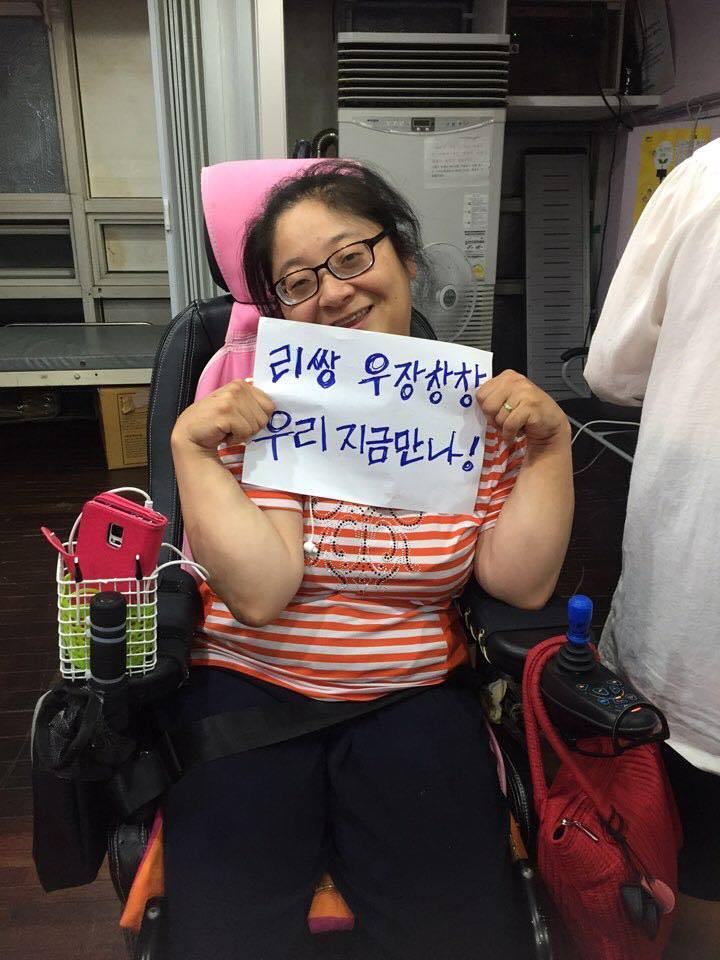 리쌍 우장창창
우리 지금만나!